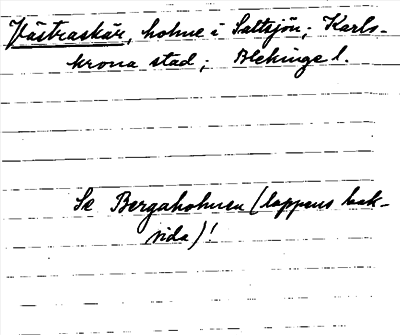 Västraskär, holme i Saltsjön; Karls-
krona stad; Blekinge l.
Se Bergaholmen (lappens bak-
sida)!